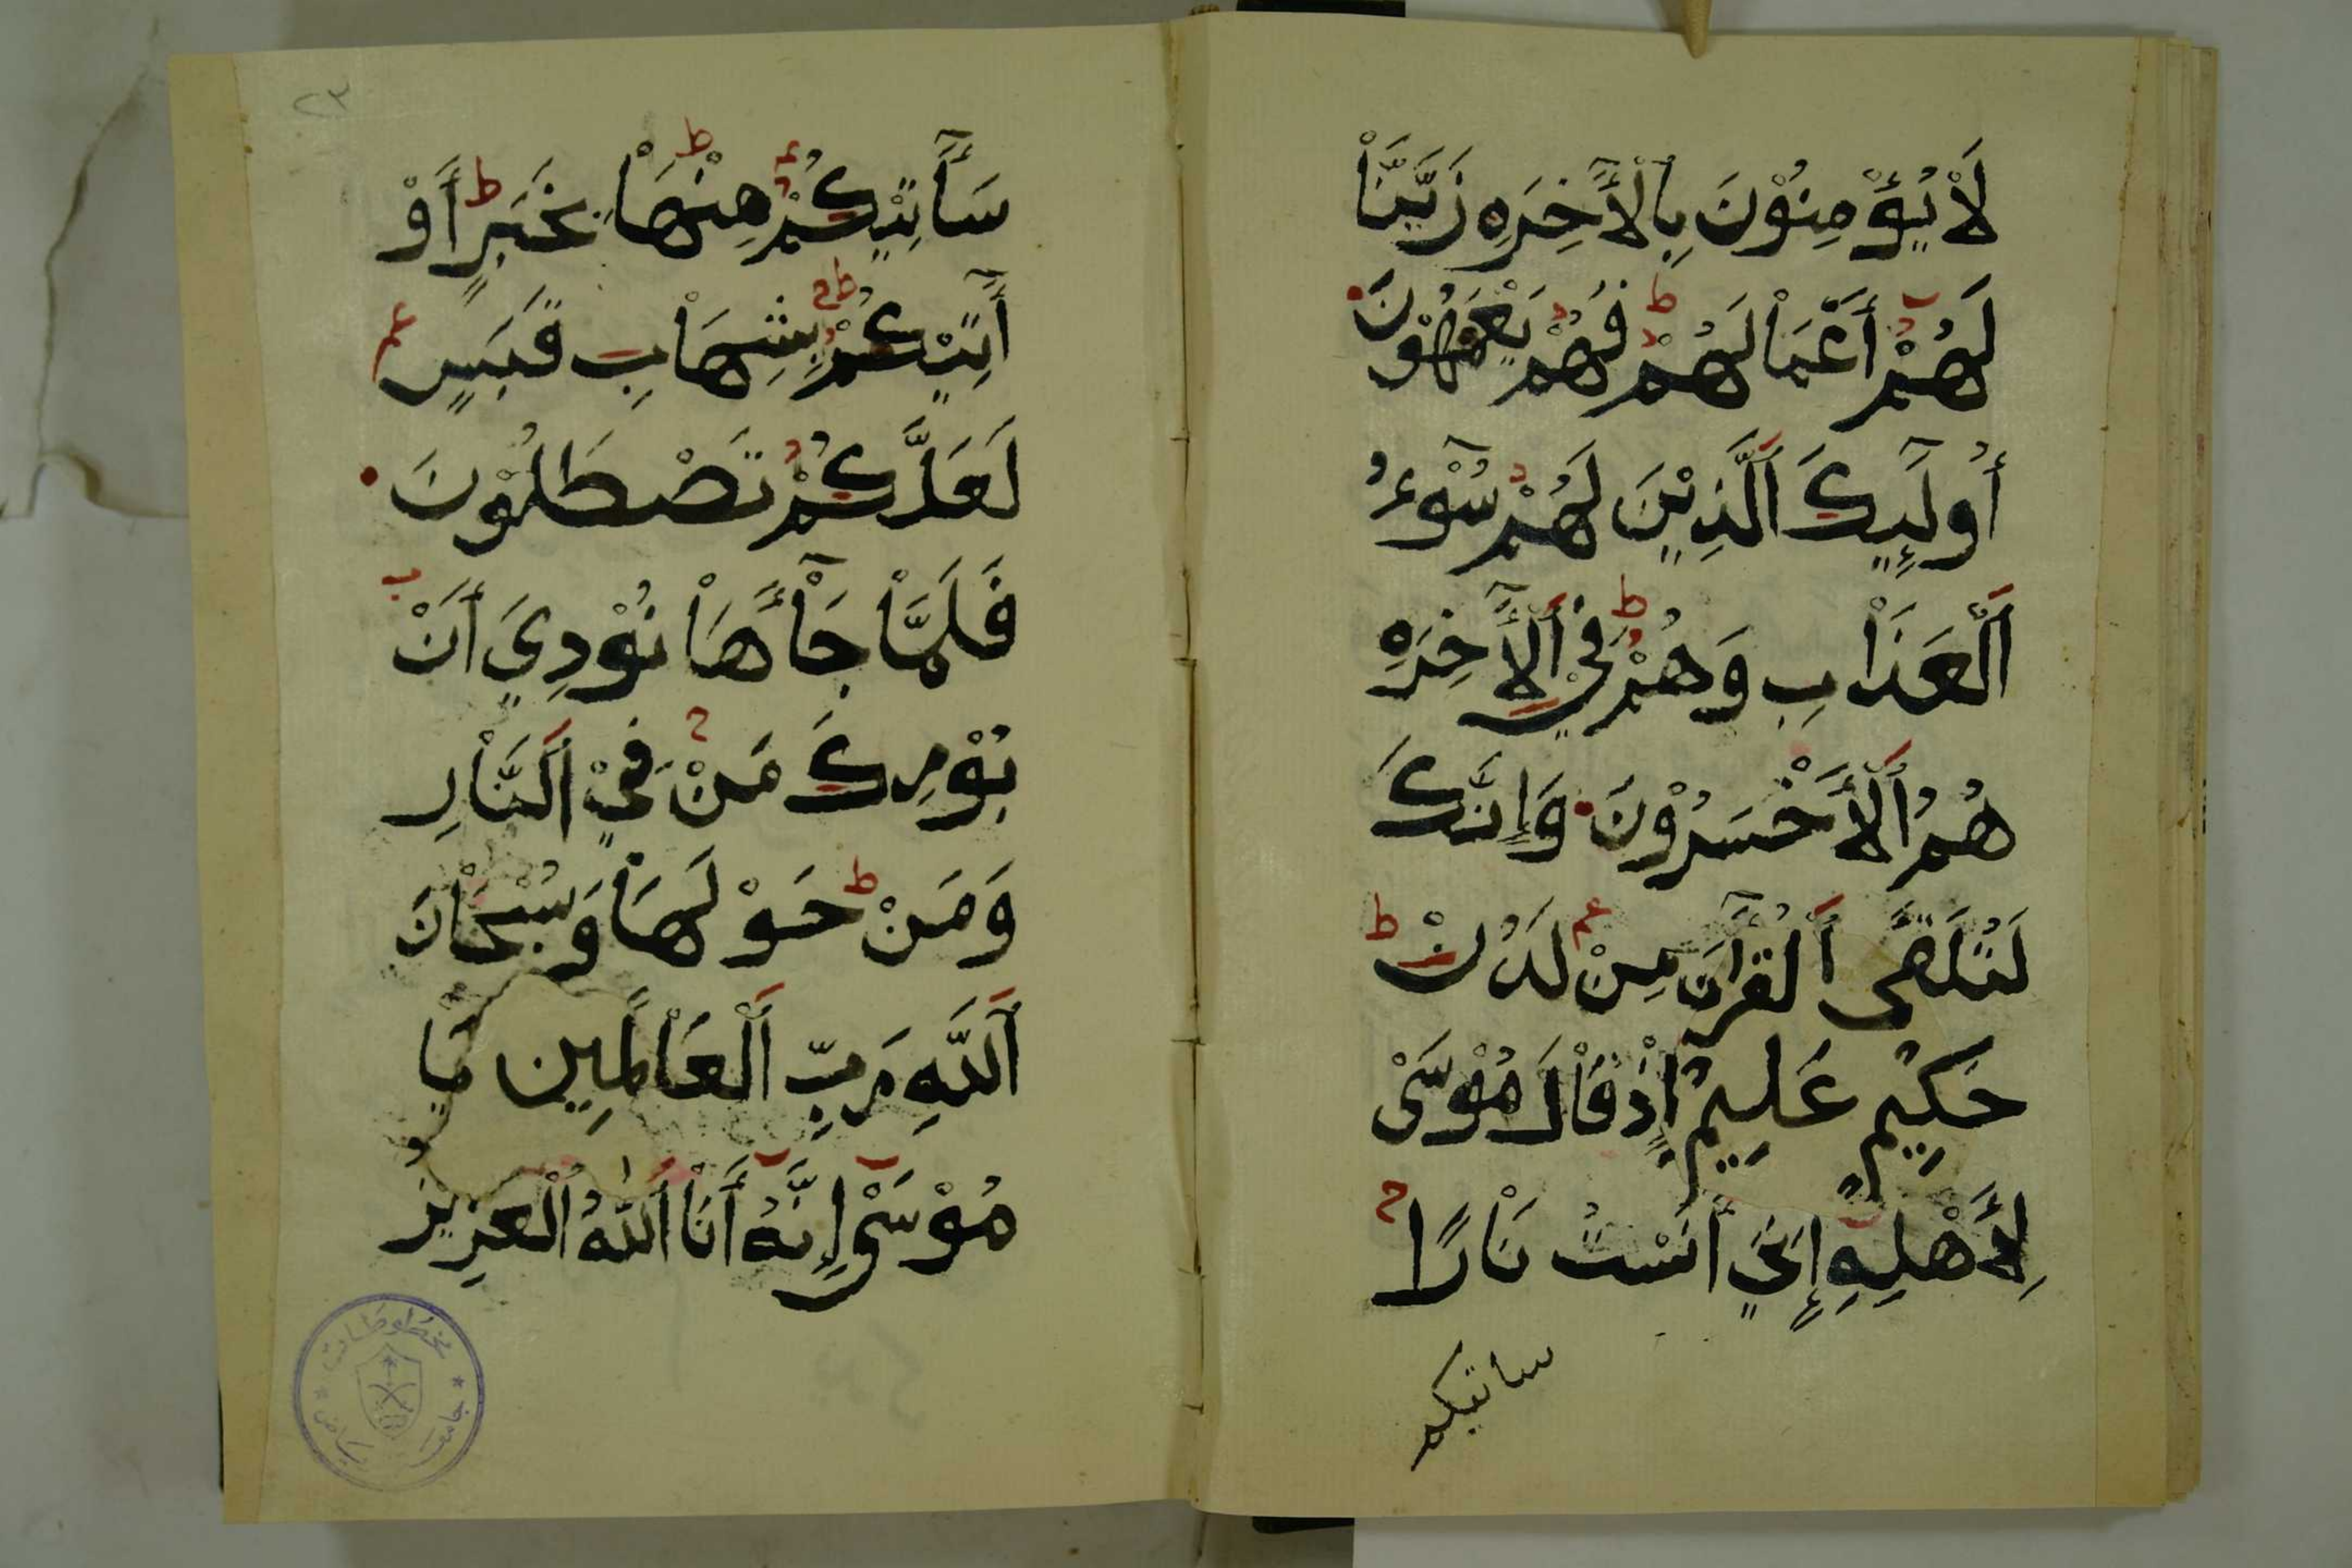 لَاْ يُؤْمِنُوْنَ بِالْأَخِرَهِ زَيَّنَّاْ
لَهُمْ أَعْمَاْلَهُمْ فَهُمْ يَعْمَهُوْنَ
أُولَٓئِكَ اَلَّذِيْنَ لَهُمْ سُوْٓءُ
اَلْعَذَاْبِ وَهُمْ فِيْ اَلْأَخِرَهِ
هُمُ اَلْأَخْسَرُوْنَ وَإِنَّكَ
لَتُلَقَّى اَلْقُرْآنَ مِنْ لَدُنْ
حَكِيْمٍ عَلِيْمٍ إِذْ قَاْلَ مُوْسَىْ
لِأَهْلِهِ إِنِّيْ أَنَسْتُ نَاْرًا
ساتيكم
٢٣
سَأَتِيْكُمْ مِنْهَاْ بِخَبَرٍ أَوْ
أَتِيْكُمْ بِشِهَاْبٍ قَبَسٍ
لَعَلَّكُمْ تَصْطَلُوْنَ
فَلَمَّاْ جَآْأَهَاْ نُوْدِيَ أَنْ
بُوْرِكَ مَنْ فِيْ اَلنَّاْرِ
وَمَنْ حَوْلَهَاْ وَسُبْحَاْنَ
اَللَّهِ رَبِّ اَلْعَاْلَمِين يَا
مُوْسَىْ إِنَّهُ أَنَاْ اَللَّهُ اَلْعَزِيْز
مخطوطات
جامعة الرياض